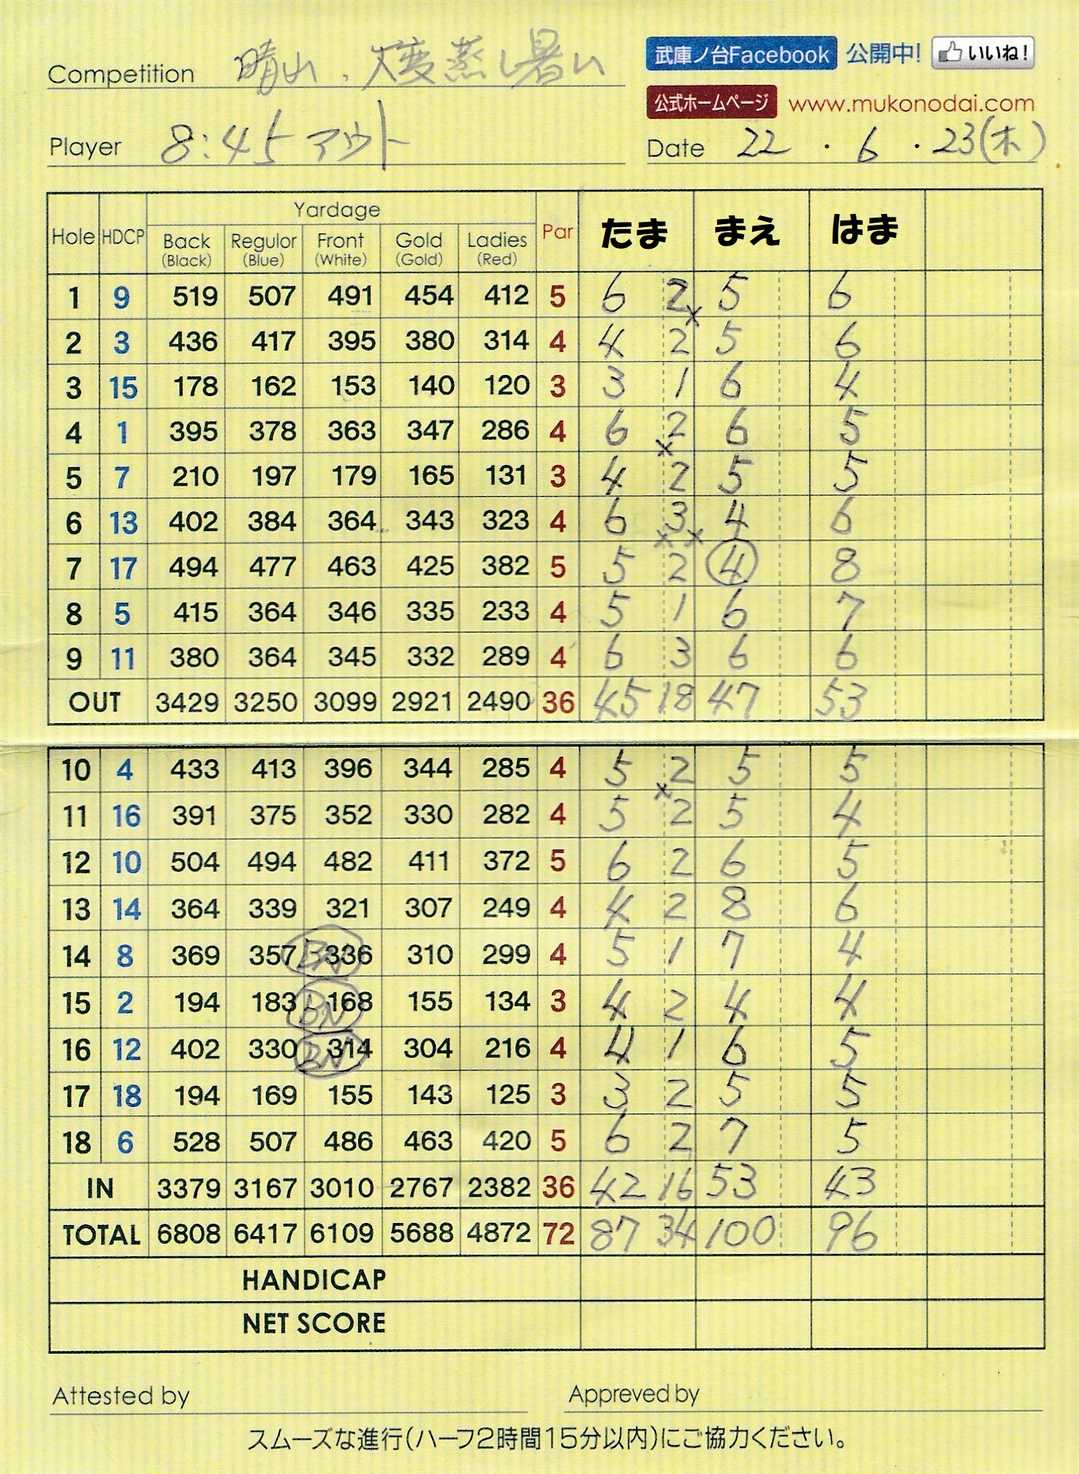 Competition 晴山、大変蒸し暑い 武庫ノ台Facebook 公開中! いいね!
公式ホームページ www.mukonodai.com
Player 8:45アウト Date 22・6・23(木)
Hole HDCP Yardage Par たま まえ はま
Back (Black) Regulor (Blue) Front (White) Gold (Gold) Ladies (Red)
1 9 519 507 491 454 412 5 6 2 x 5 6
2 3 436 417 395 380 314 4 4 2 5 6
3 15 178 162 153 140 120 3 3 1 6 4
4 1 395 378 363 347 286 4 6 2 x 6 5
5 7 210 197 179 165 131 3 4 2 5 5
6 13 402 384 364 343 323 4 6 3 x x 4 6
7 17 494 477 463 425 382 5 5 2 4 8
8 5 415 364 346 335 233 4 5 1 6 7
9 11 380 364 345 332 289 4 6 3 6 6
OUT 3429 3250 3099 2921 2490 36 45 18 47 53
10 4 433 413 396 344 285 4 5 2 x 5 5
11 16 391 375 352 330 282 4 5 2 5 4
12 10 504 494 482 411 372 5 6 2 6 5
13 14 364 339 321 307 249 4 4 2 8 6
14 8 369 357 BN 336 310 299 4 5 1 7 4
15 2 194 183 BN 168 155 134 3 4 2 4 4
16 12 402 330 BN 314 304 216 4 4 1 6 5
17 18 194 169 155 143 125 3 3 2 5 5
18 6 528 507 486 463 420 5 6 2 7 5
IN 3379 3167 3010 2767 2382 36 42 16 53 43
TOTAL 6808 6417 6109 5688 4872 72 87 34 100 96
HANDICAP
NET SCORE
Attested by Appreved by
スムーズな進行(ハーフ2時間15分以内)にご協力ください。